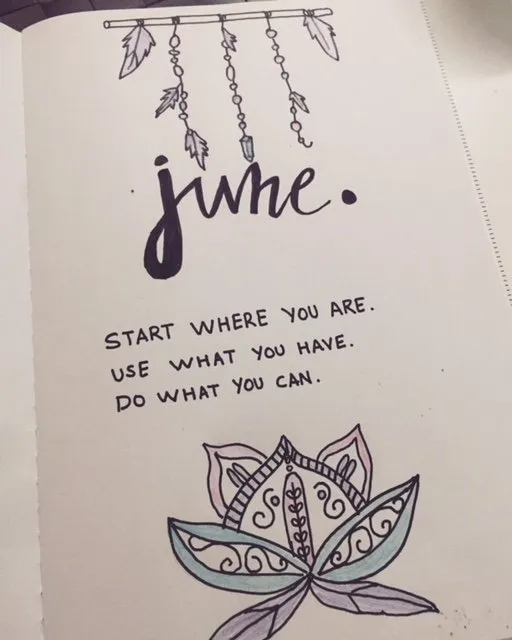 june.
START WHERE YOU ARE.
USE WHAT YOU HAVE.
DO WHAT YOU CAN.